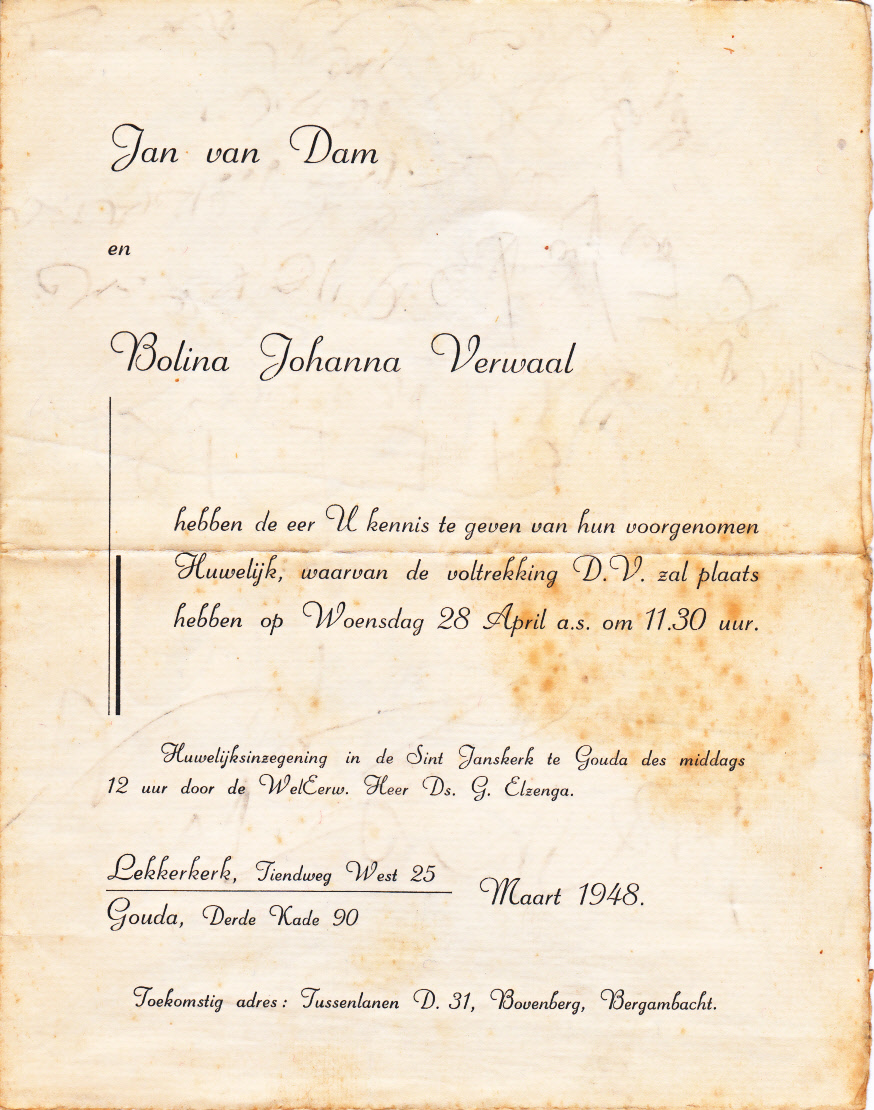 Jan van Dam
en
Bolina Johanna Verwaal
hebben de eer U kennis te geven van hun voorgenomen
Huwelijk, waarvan de voltrekking D.V. zal plaats
hebben op Woensdag 28 April a.s. om 11.30 uur.
Huwelijksinzegening in de Sint Janskerk te Gouda des middags
12 uur door de WelEerw. Heer Ds. G. Elzenga.
Lekkerkerk, Tiendweg West 25
Maart 1948.
Gouda, Derde Kade 90
Toekomstig adres: Tussenlanen D. 31, Bovenberg, Bergambacht.